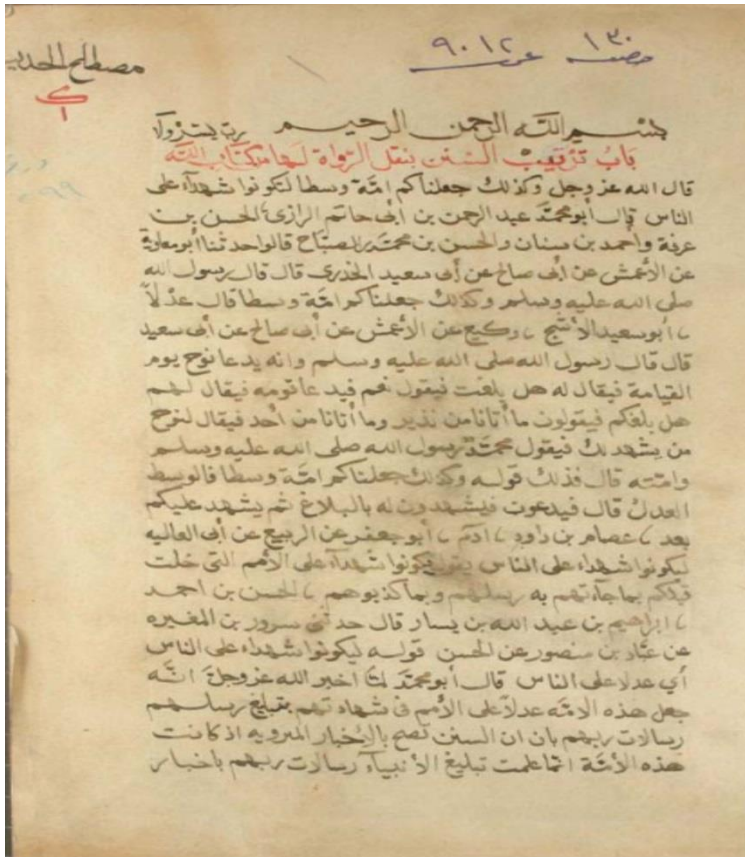 ١٣٠ ٩٠١٢
مصطلح الحديث
بسم الله الرحمن الرحيم رب يسر ولا
باب تثبيت السنن بنقل الرواة لها من كتاب الله
قال الله عز وجل وكذلك جعلناكم امة وسطا لتكونوا شهدآء على
الناس قال أبو محمد عبد الرحمن بن أبى حاتم الرازى الحسن بن
عرفة وأحمد بن سنان والحسن بن محمد بن الصباح قالوا حدثنا أبو معاوية
عن الأعمش عن أبى صالح عن أبى سعيد الخدرى قال قال رسول الله
صلى الله عليه وسلم وكذلك جعلناكم امة وسطا قال عدلاً
أبو سعيد الأشج وكيع عن الأعمش عن أبى صالح عن أبى سعيد
قال قال رسول الله صلى الله عليه وسلم وانه يدعا نوح يوم
القيامة فيقال له هل بلغت فيقول نعم فيدعا قومه فيقال لهم
هل بلغكم فيقولون ما أتانا من نذير وما أتانا من أحد فيقال لنوح
من يشهد لك فيقول محمد رسول الله صلى الله عليه وسلم
وامته قال فذلك قوله وكذلك جعلناكم امة وسطا فالوسط
العدل قال فيدعون فيشهدون له بالبلاغ ثم يشهد عليكم
بعد عصام بن داود ادم أبو جعفر عن الربيع عن أبى العاليه
ليكونوا شهداء على الناس يقول ليكونوا شهدآء على الأمم التى خلت
قبلكم بما جآءتهم به رسلهم وبما كذبوهم الحسن بن احمد
ابراهيم بن عبد الله بن يسار قال حدثنى سرور بن المغيره
عن عباد بن منصور عن الحسن قوله ليكونوا شهداء على الناس
أي عدلا على الناس قال أبو محمد لما اخبر الله عز وجل انه
جعل هذه الامة عدلا على الأمم فى شهادتهم بتبليغ رسلهم
رسالات ربهم بان ان السنن تصح بالإخبار المرويه اذ كانت
هذه الأمة انما علمت تبليغ الأنبيآء رسالات ربهم باخبار